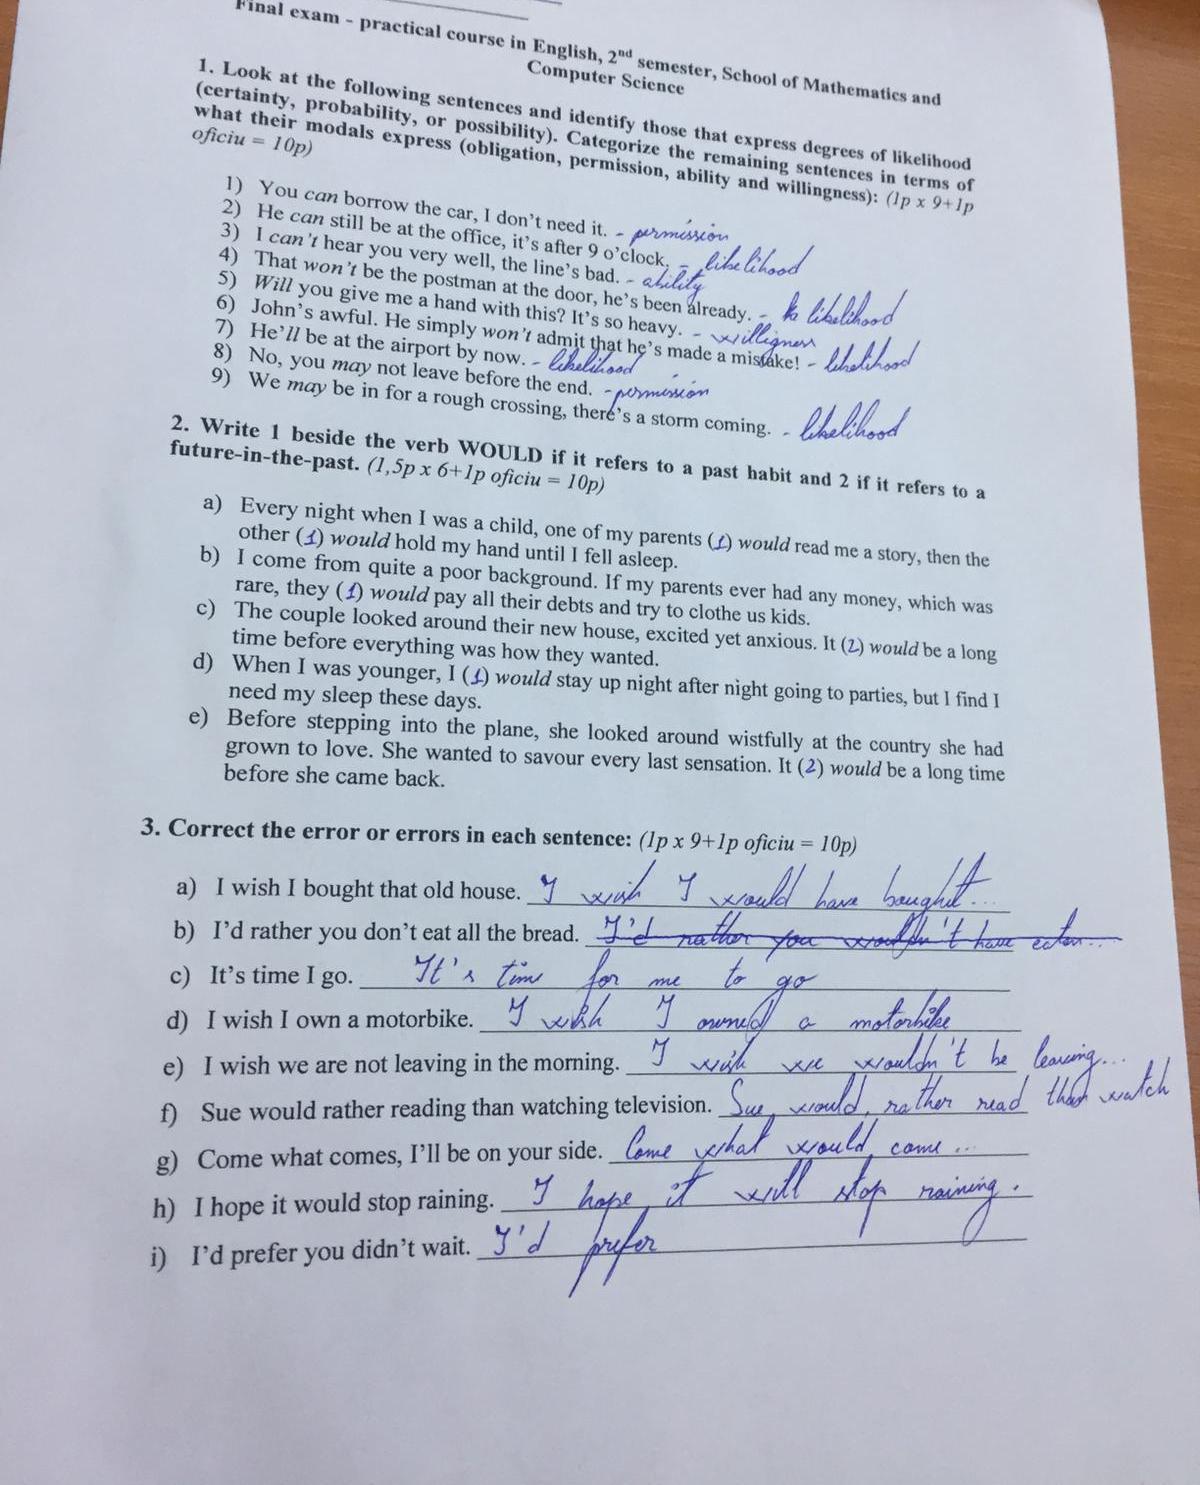 Final exam - practical course in English, 2nd semester, School of Mathematics and
Computer Science
1. Look at the following sentences and identify those that express degrees of likelihood
(certainty, probability, or possibility). Categorize the remaining sentences in terms of
what their modals express (obligation, permission, ability and willingness): (1p x 9+1p
oficiu = 10p)
1) You can borrow the car, I don't need it. - permission
2) He can still be at the office, it's after 9 o'clock. - likelihood
3) I can't hear you very well, the line's bad. - ability
4) That won't be the postman at the door, he's been already. - likelihood
5) Will you give me a hand with this? It's so heavy. - willigness
6) John's awful. He simply won't admit that he's made a mistake! - likelihood
7) He'll be at the airport by now. - likelihood
8) No, you may not leave before the end. - permission
9) We may be in for a rough crossing, there's a storm coming. - likelihood
2. Write 1 beside the verb WOULD if it refers to a past habit and 2 if it refers to a
future-in-the-past. (1,5p x 6+1p oficiu = 10p)
a) Every night when I was a child, one of my parents (1) would read me a story, then the
other (1) would hold my hand until I fell asleep.
b) I come from quite a poor background. If my parents ever had any money, which was
rare, they (1) would pay all their debts and try to clothe us kids.
c) The couple looked around their new house, excited yet anxious. It (2) would be a long
time before everything was how they wanted.
d) When I was younger, I (1) would stay up night after night going to parties, but I find I
need my sleep these days.
e) Before stepping into the plane, she looked around wistfully at the country she had
grown to love. She wanted to savour every last sensation. It (2) would be a long time
before she came back.
3. Correct the error or errors in each sentence: (1p x 9+1p oficiu = 10p)
a) I wish I bought that old house. I wish I would have bought...
b) I'd rather you don't eat all the bread. I'd rather you wouldn't have eaten...
c) It's time I go. It's time for me to go
d) I wish I own a motorbike. I wish I owned a motorbike
e) I wish we are not leaving in the morning. I wish we wouldn't be leaving...
f) Sue would rather reading than watching television. Sue would rather read than watch
g) Come what comes, I'll be on your side. Come what would come ...
h) I hope it would stop raining. I hope it will stop raining.
i) I'd prefer you didn't wait. I'd prefer